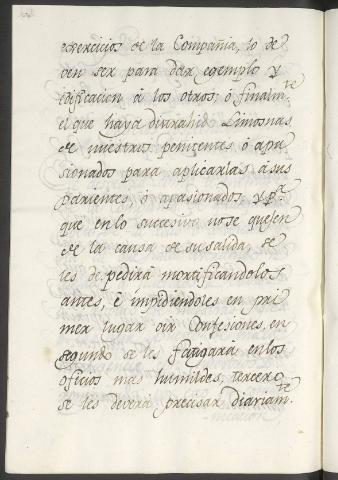 exercicios de la Compañia, lo de
ven ser para dar egemplo y
edificacion à los otros; ò finalm.te
el que haya distrahido Limosnas
de nuestros penitentes ò apa
sionados para aplicarlas à sus
parientes, ò apasionados, y p.a
que en lo sucesivo no se quejen
de la causa de su salida, se
les despedirà mortificandolos
antes, è impidiendoles en pri
mer lugar oir Confesiones, en
segundo se les fatigarà en los
oficios mas humildes, tercero
se les deverà precisar diariam.te